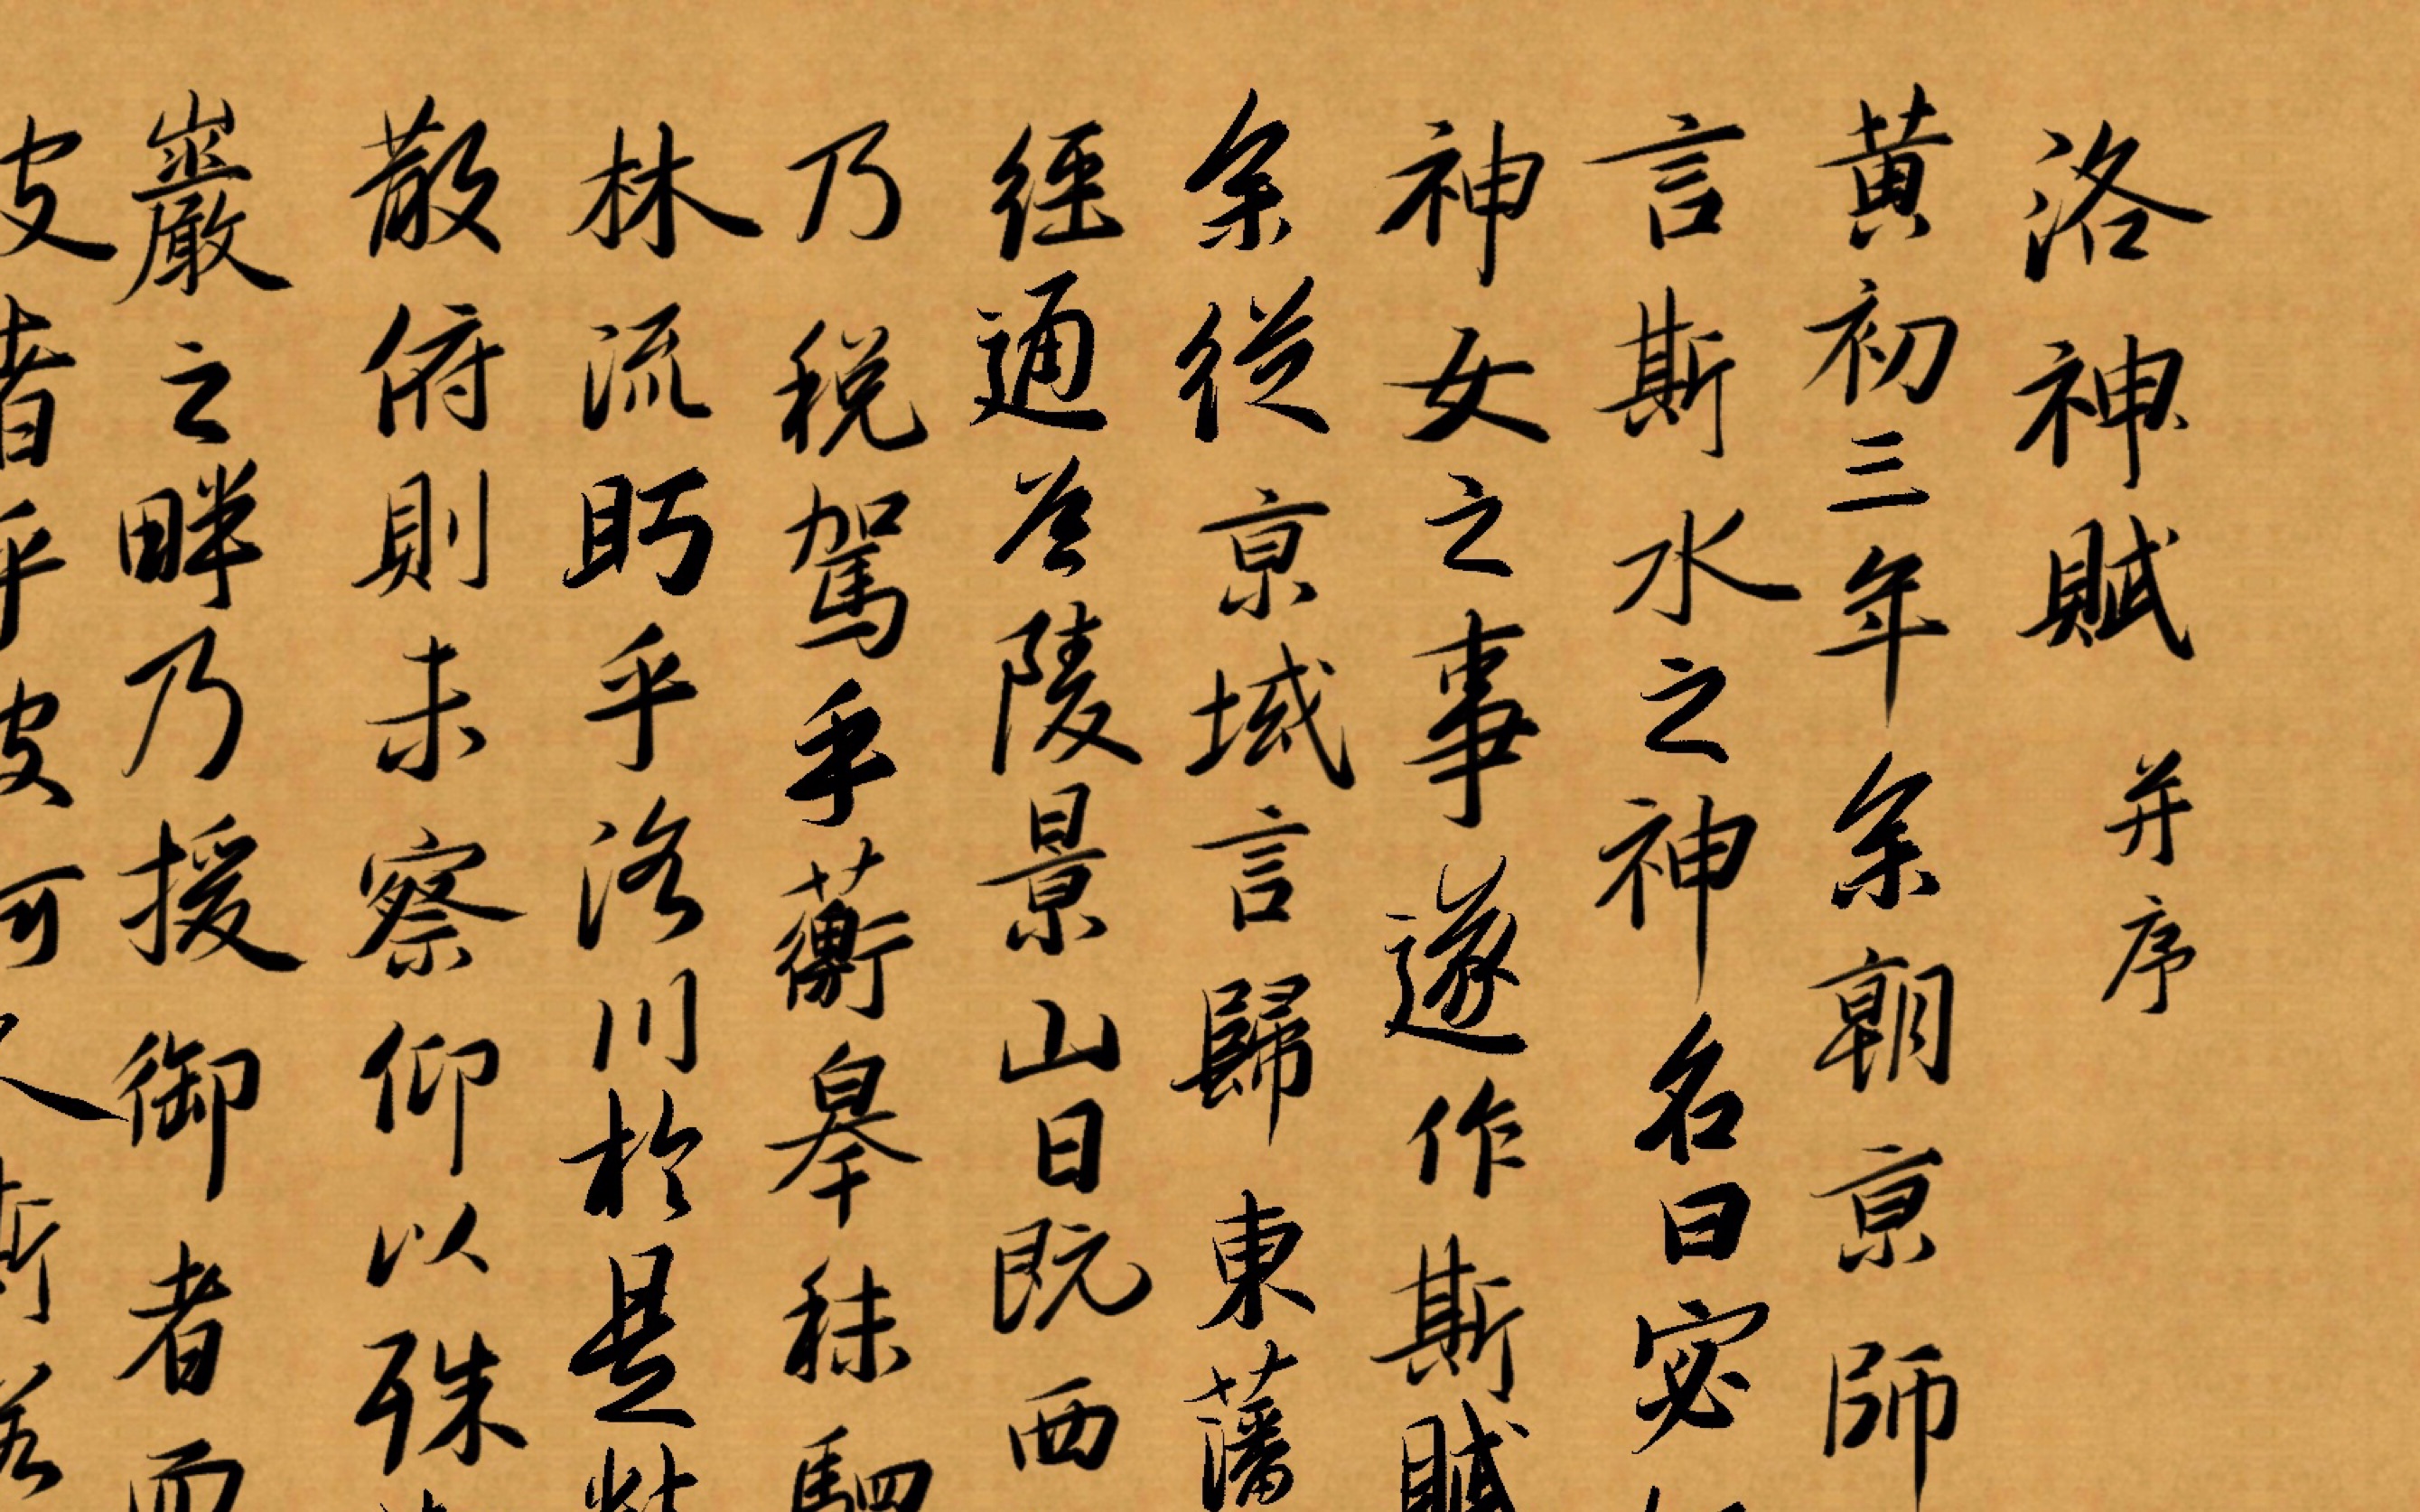 洛神賦 并序
黄初三年余朝京師
言斯水之神名曰宓
神女之事遂作斯賦
余從京域言歸東藩
經通谷陵景山日既西
乃税駕乎蘅皋秣駟
林流眄乎洛川於是精
散俯則未察仰以殊
巖之畔乃援御者而